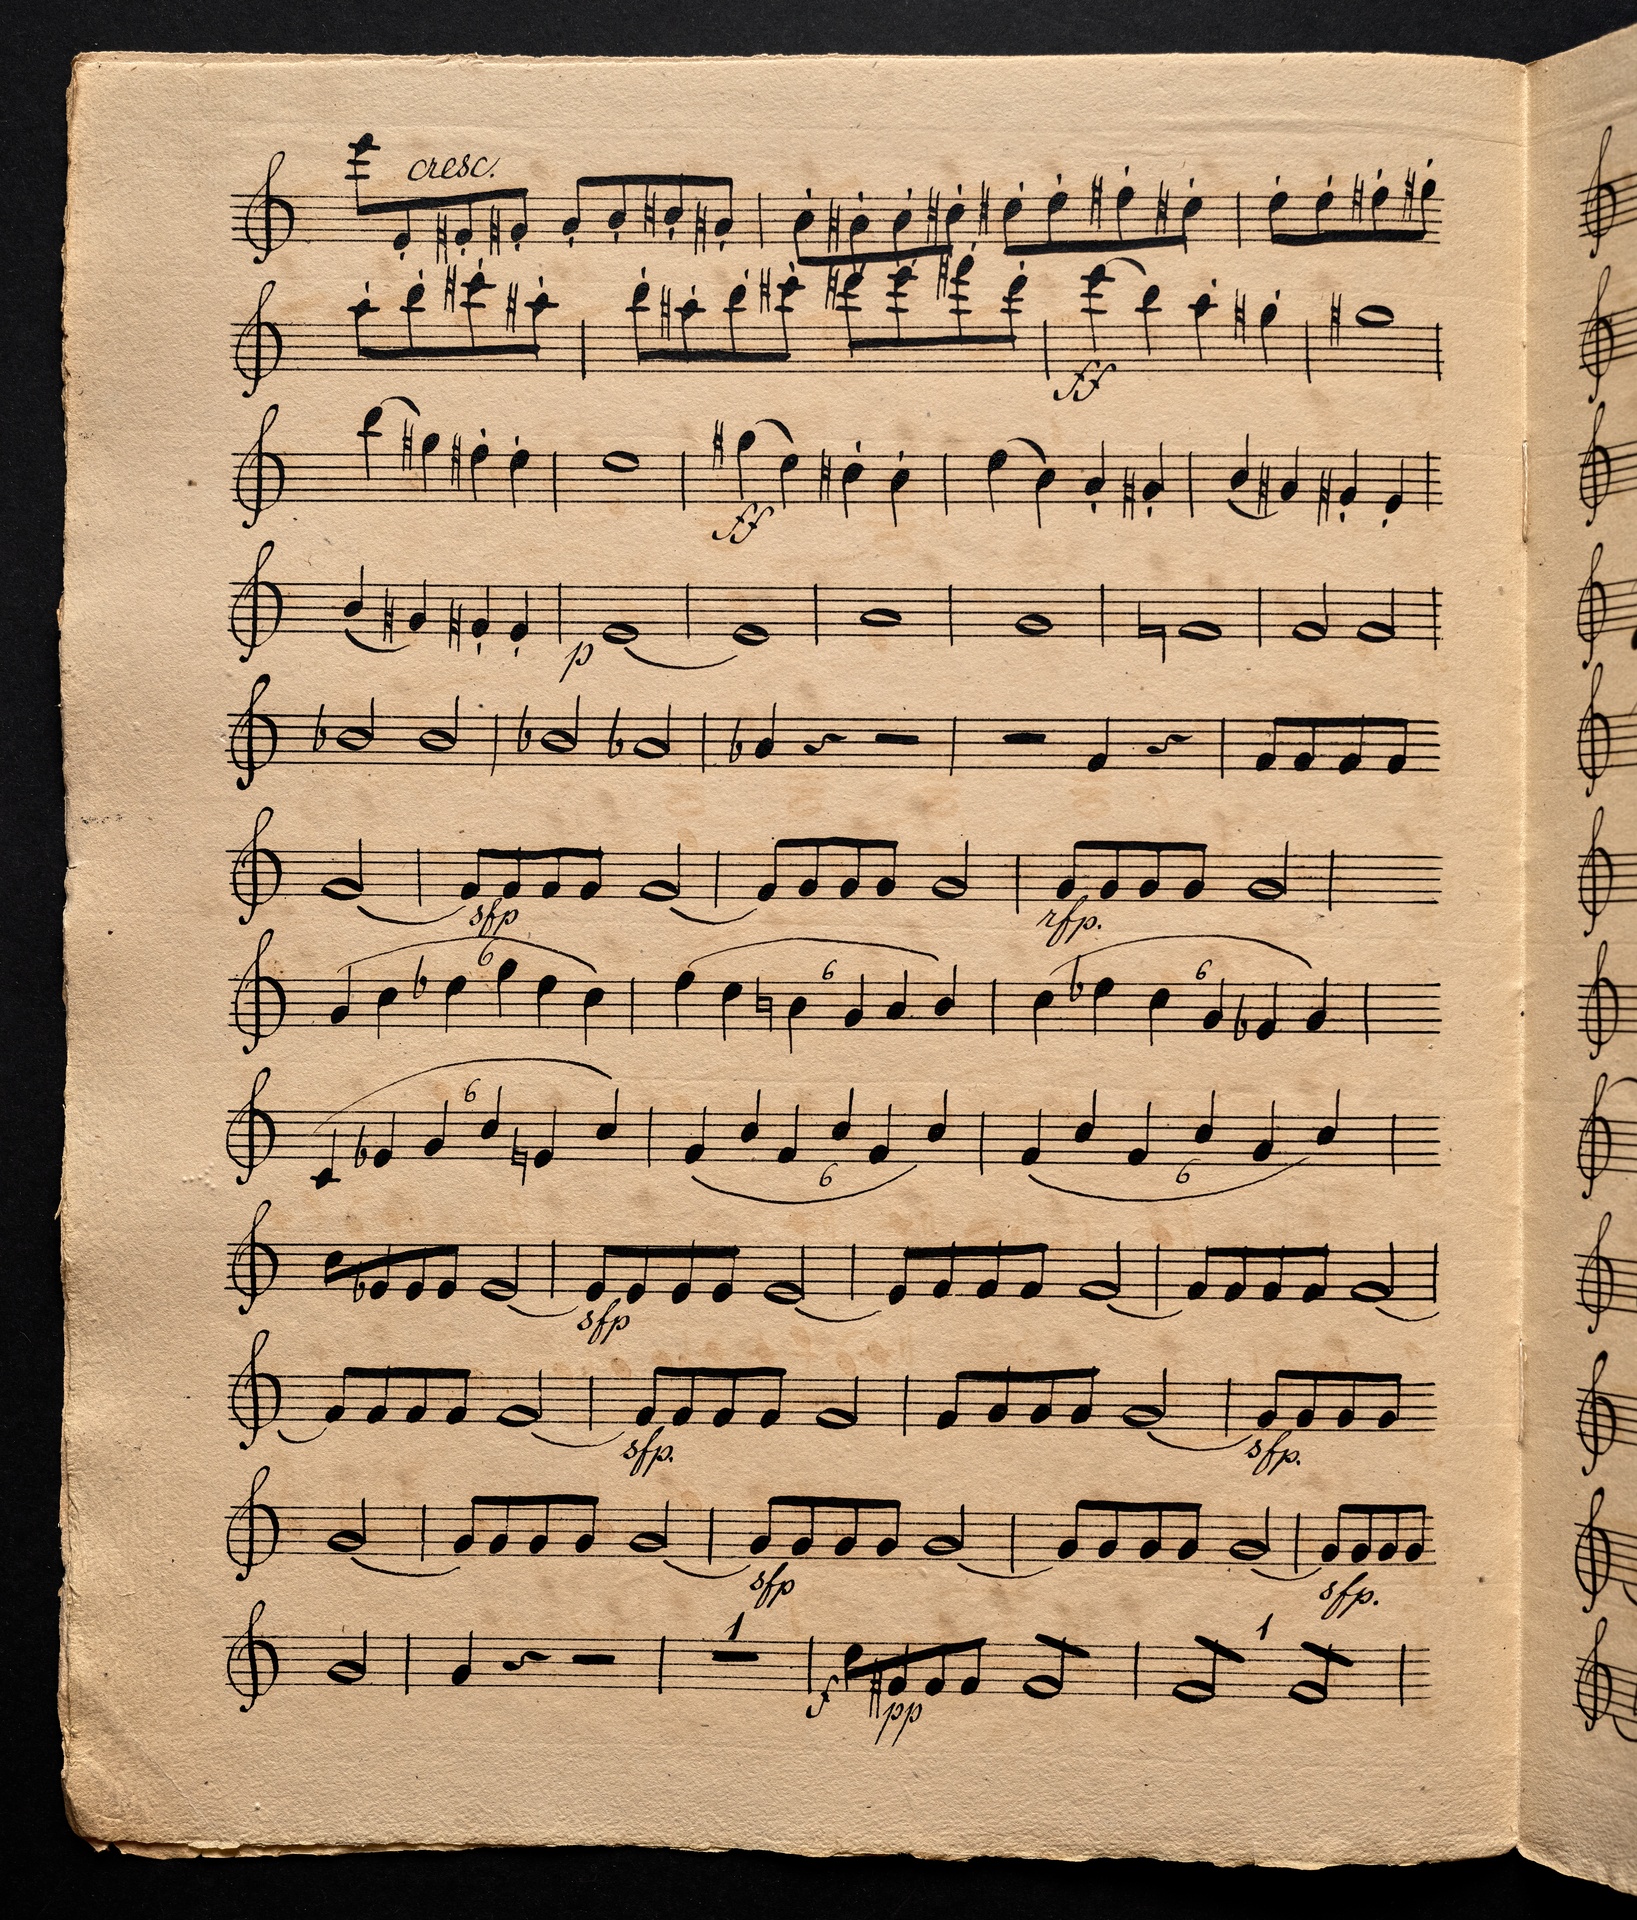 cresc.
ff
ff
p
sfp rfp.
6 6 6
6 6 6
sfp
sfp. sfp.
sfp sfp.
1 1
f pp